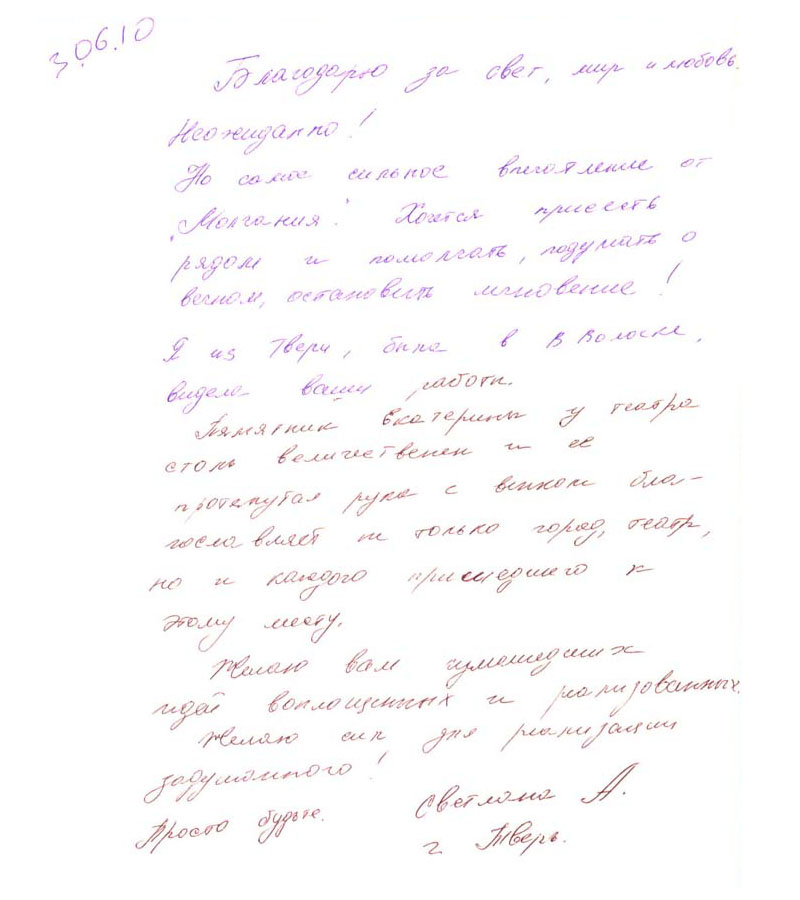 30.06.10
Благодарю за свет, мир и любовь.
Неожиданно!
Но самое сильное впечатление от
"Молчания". Хочется присесть
рядом и помолчать, подумать о
вечном, остановить мгновение!
Я из Твери, была в В Волочке,
видела ваши работы.
Памятник Екатерины у театра
столь величественен и ее
протянутая рука с венком бла-
гославляет не только город, театр,
но и каждого пришедшего к
этому месту.
Желаю вам сумашедших
идей воплощенных и реализованных.
Желаю сил для реализации
задуманного!
Просто будьте. Светлана А.
г. Тверь.